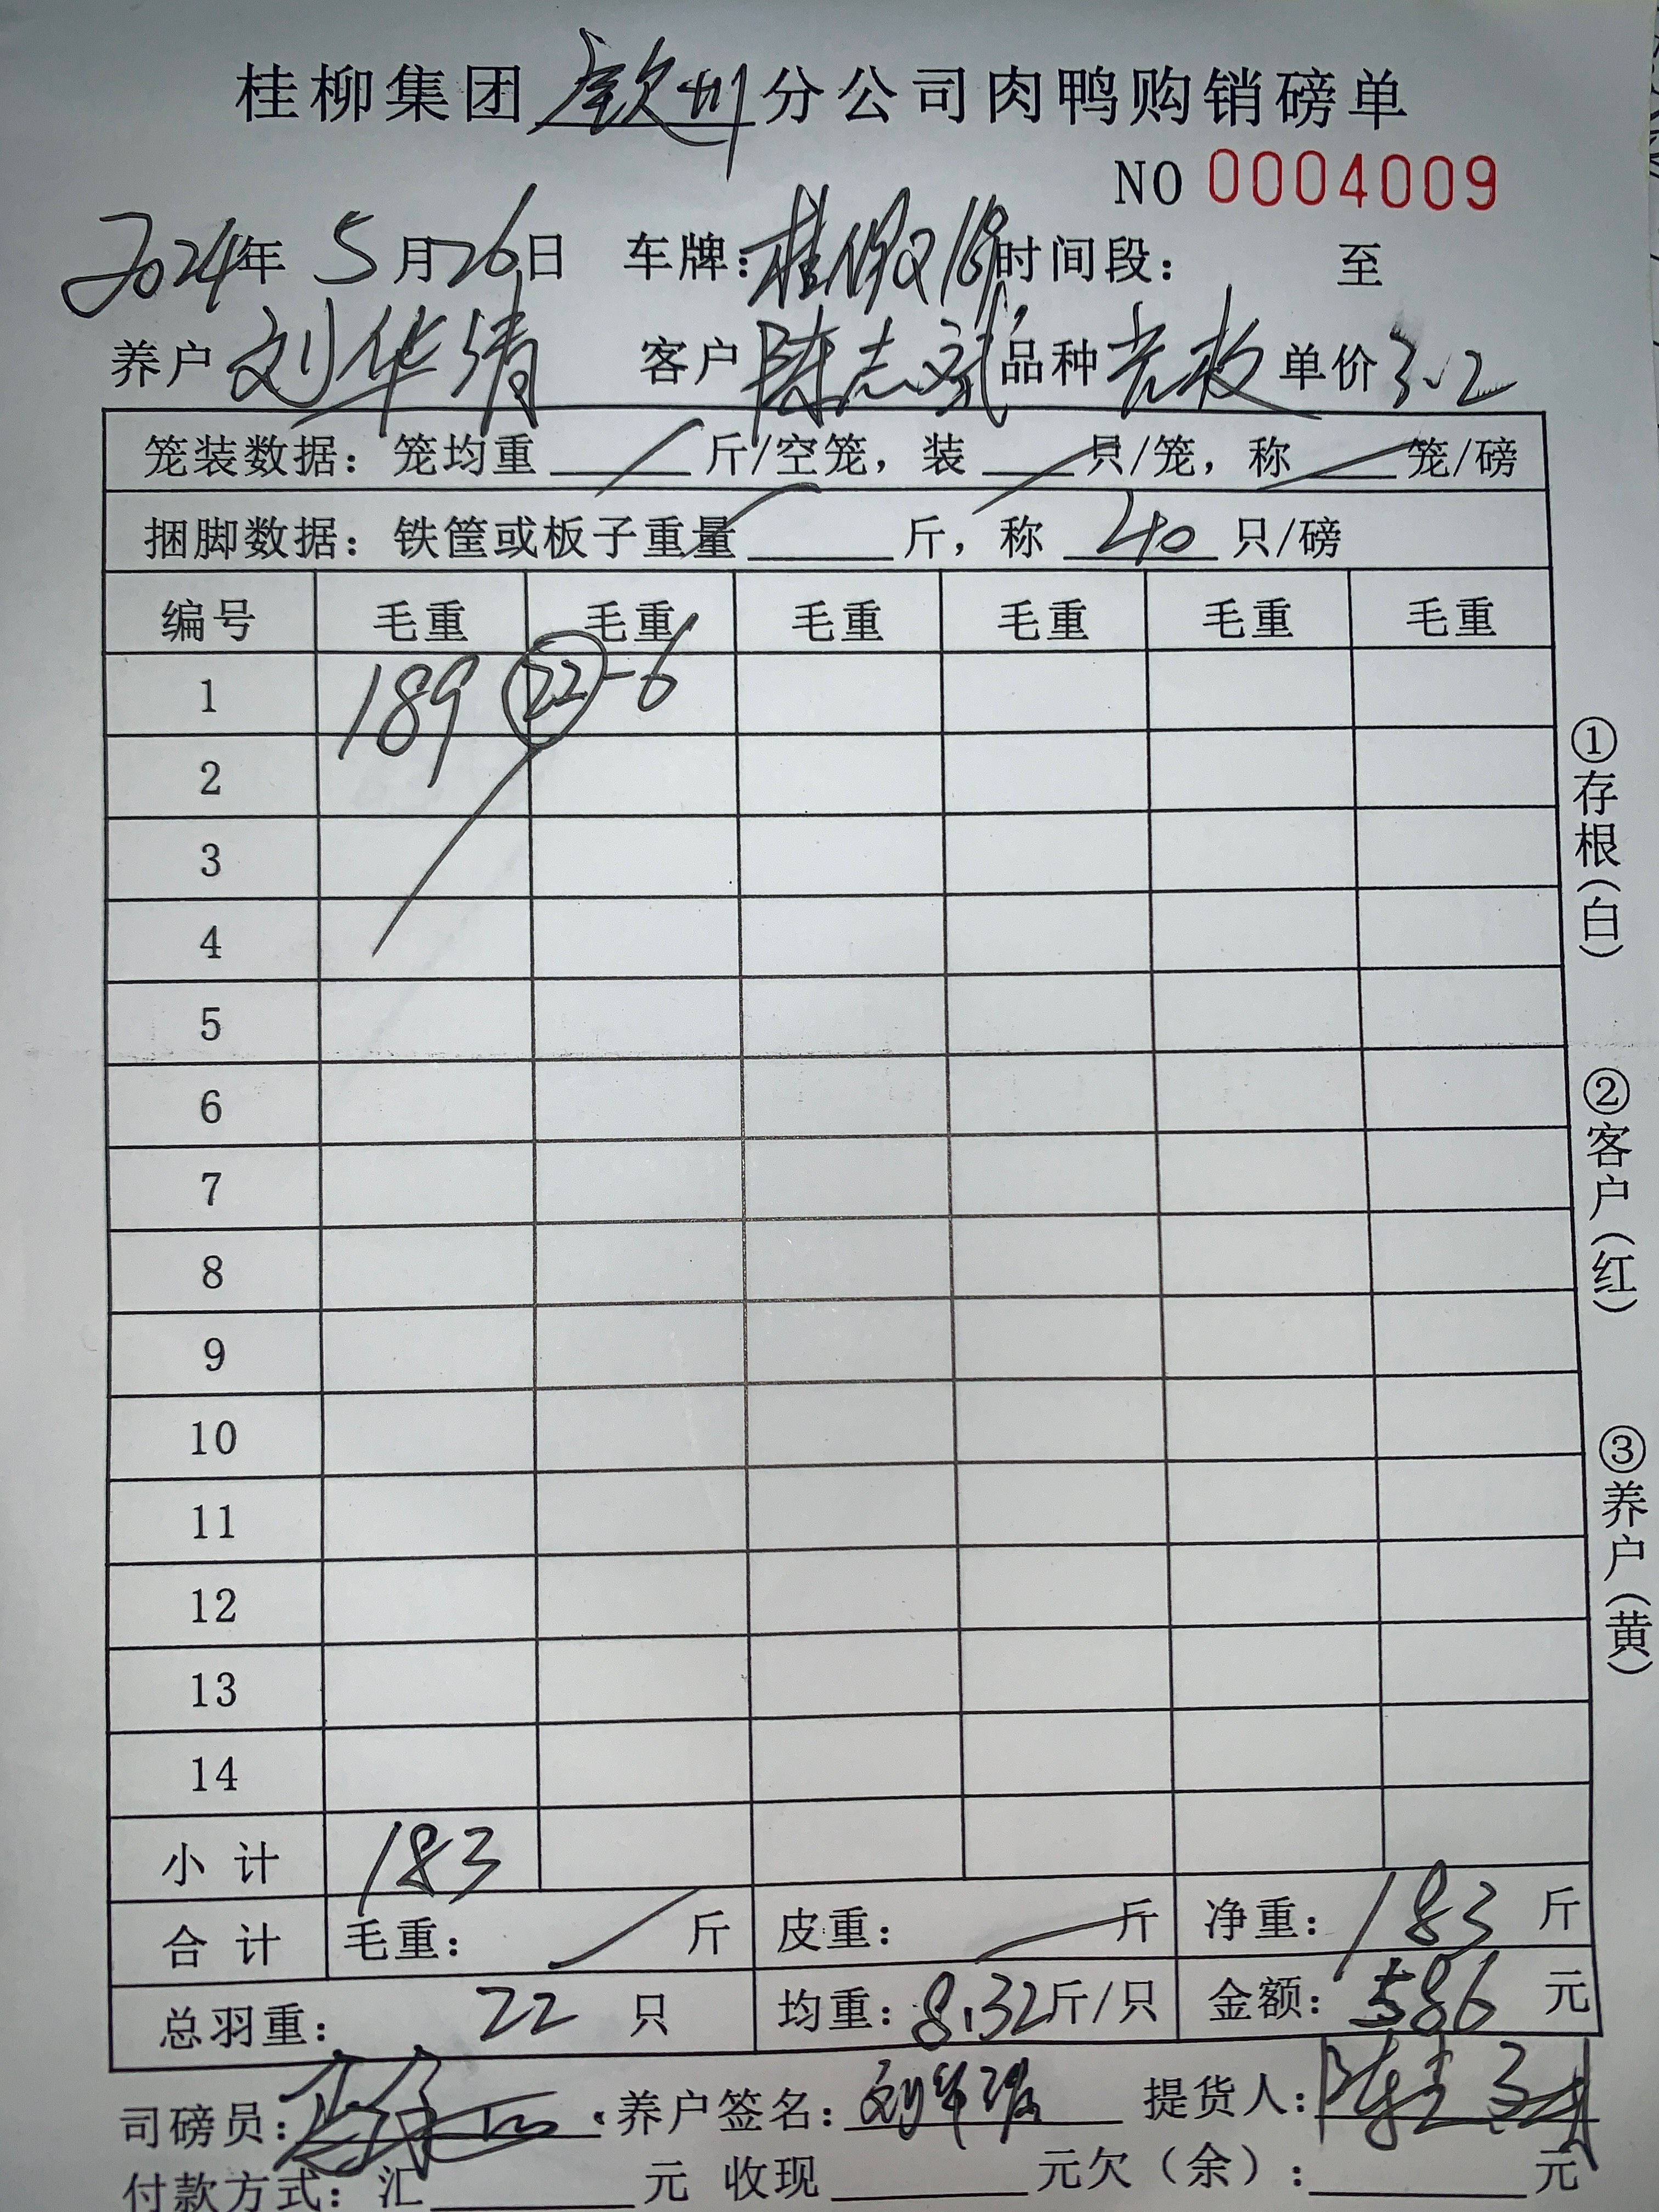 桂柳集团钦州分公司肉鸭购销磅单
NO 0004009
2024年 5月26日 车牌: 时间段: 至
养户 刘华清 客户 陈志斌 品种 单价3.2
笼装数据: 笼均重 斤/空笼, 装 只/笼, 称 笼/磅
捆脚数据: 铁筐或板子重量 斤, 称 40 只/磅
编号 毛重 毛重 毛重 毛重 毛重 毛重
1 189 22 -6
2
3
4
5
6
7
8
9
10
11
12
13
14
小计 183
合计 毛重: 斤 皮重: 斤 净重: 183 斤
总羽重: 22 只 均重: 8.32斤/只 金额: 586 元
司磅员: 养户签名: 提货人:
付款方式: 汇 元 收现 元欠(余): 元
①存根(白)
②客户(红)
③养户(黄)